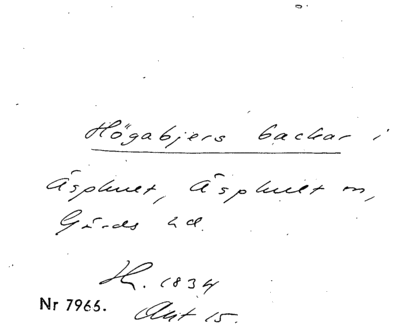 Högabjers backar i
Äsphult, Äsphult sn,
Gärds hd.
H. 1834
Nr 7965.
Akt 15.